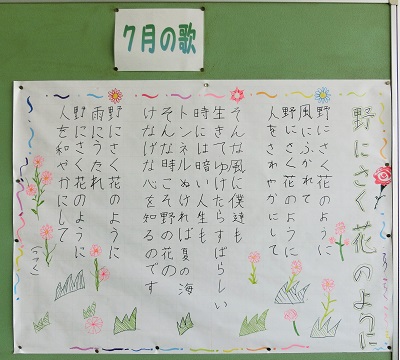 7月の歌
野にさく花のように
野にさく花のように
風にふかれて
野にさく花のように
人をさわやかにして
そんな風に僕達も
生きてゆけたらすばらしい
時には暗い人生も
トンネルぬければ夏の海
そんな時こそ野の花の
けなげな心を知るのです
野にさく花のように
雨にうたれ
野にさく花のように
人を和やかにして
(つづく)